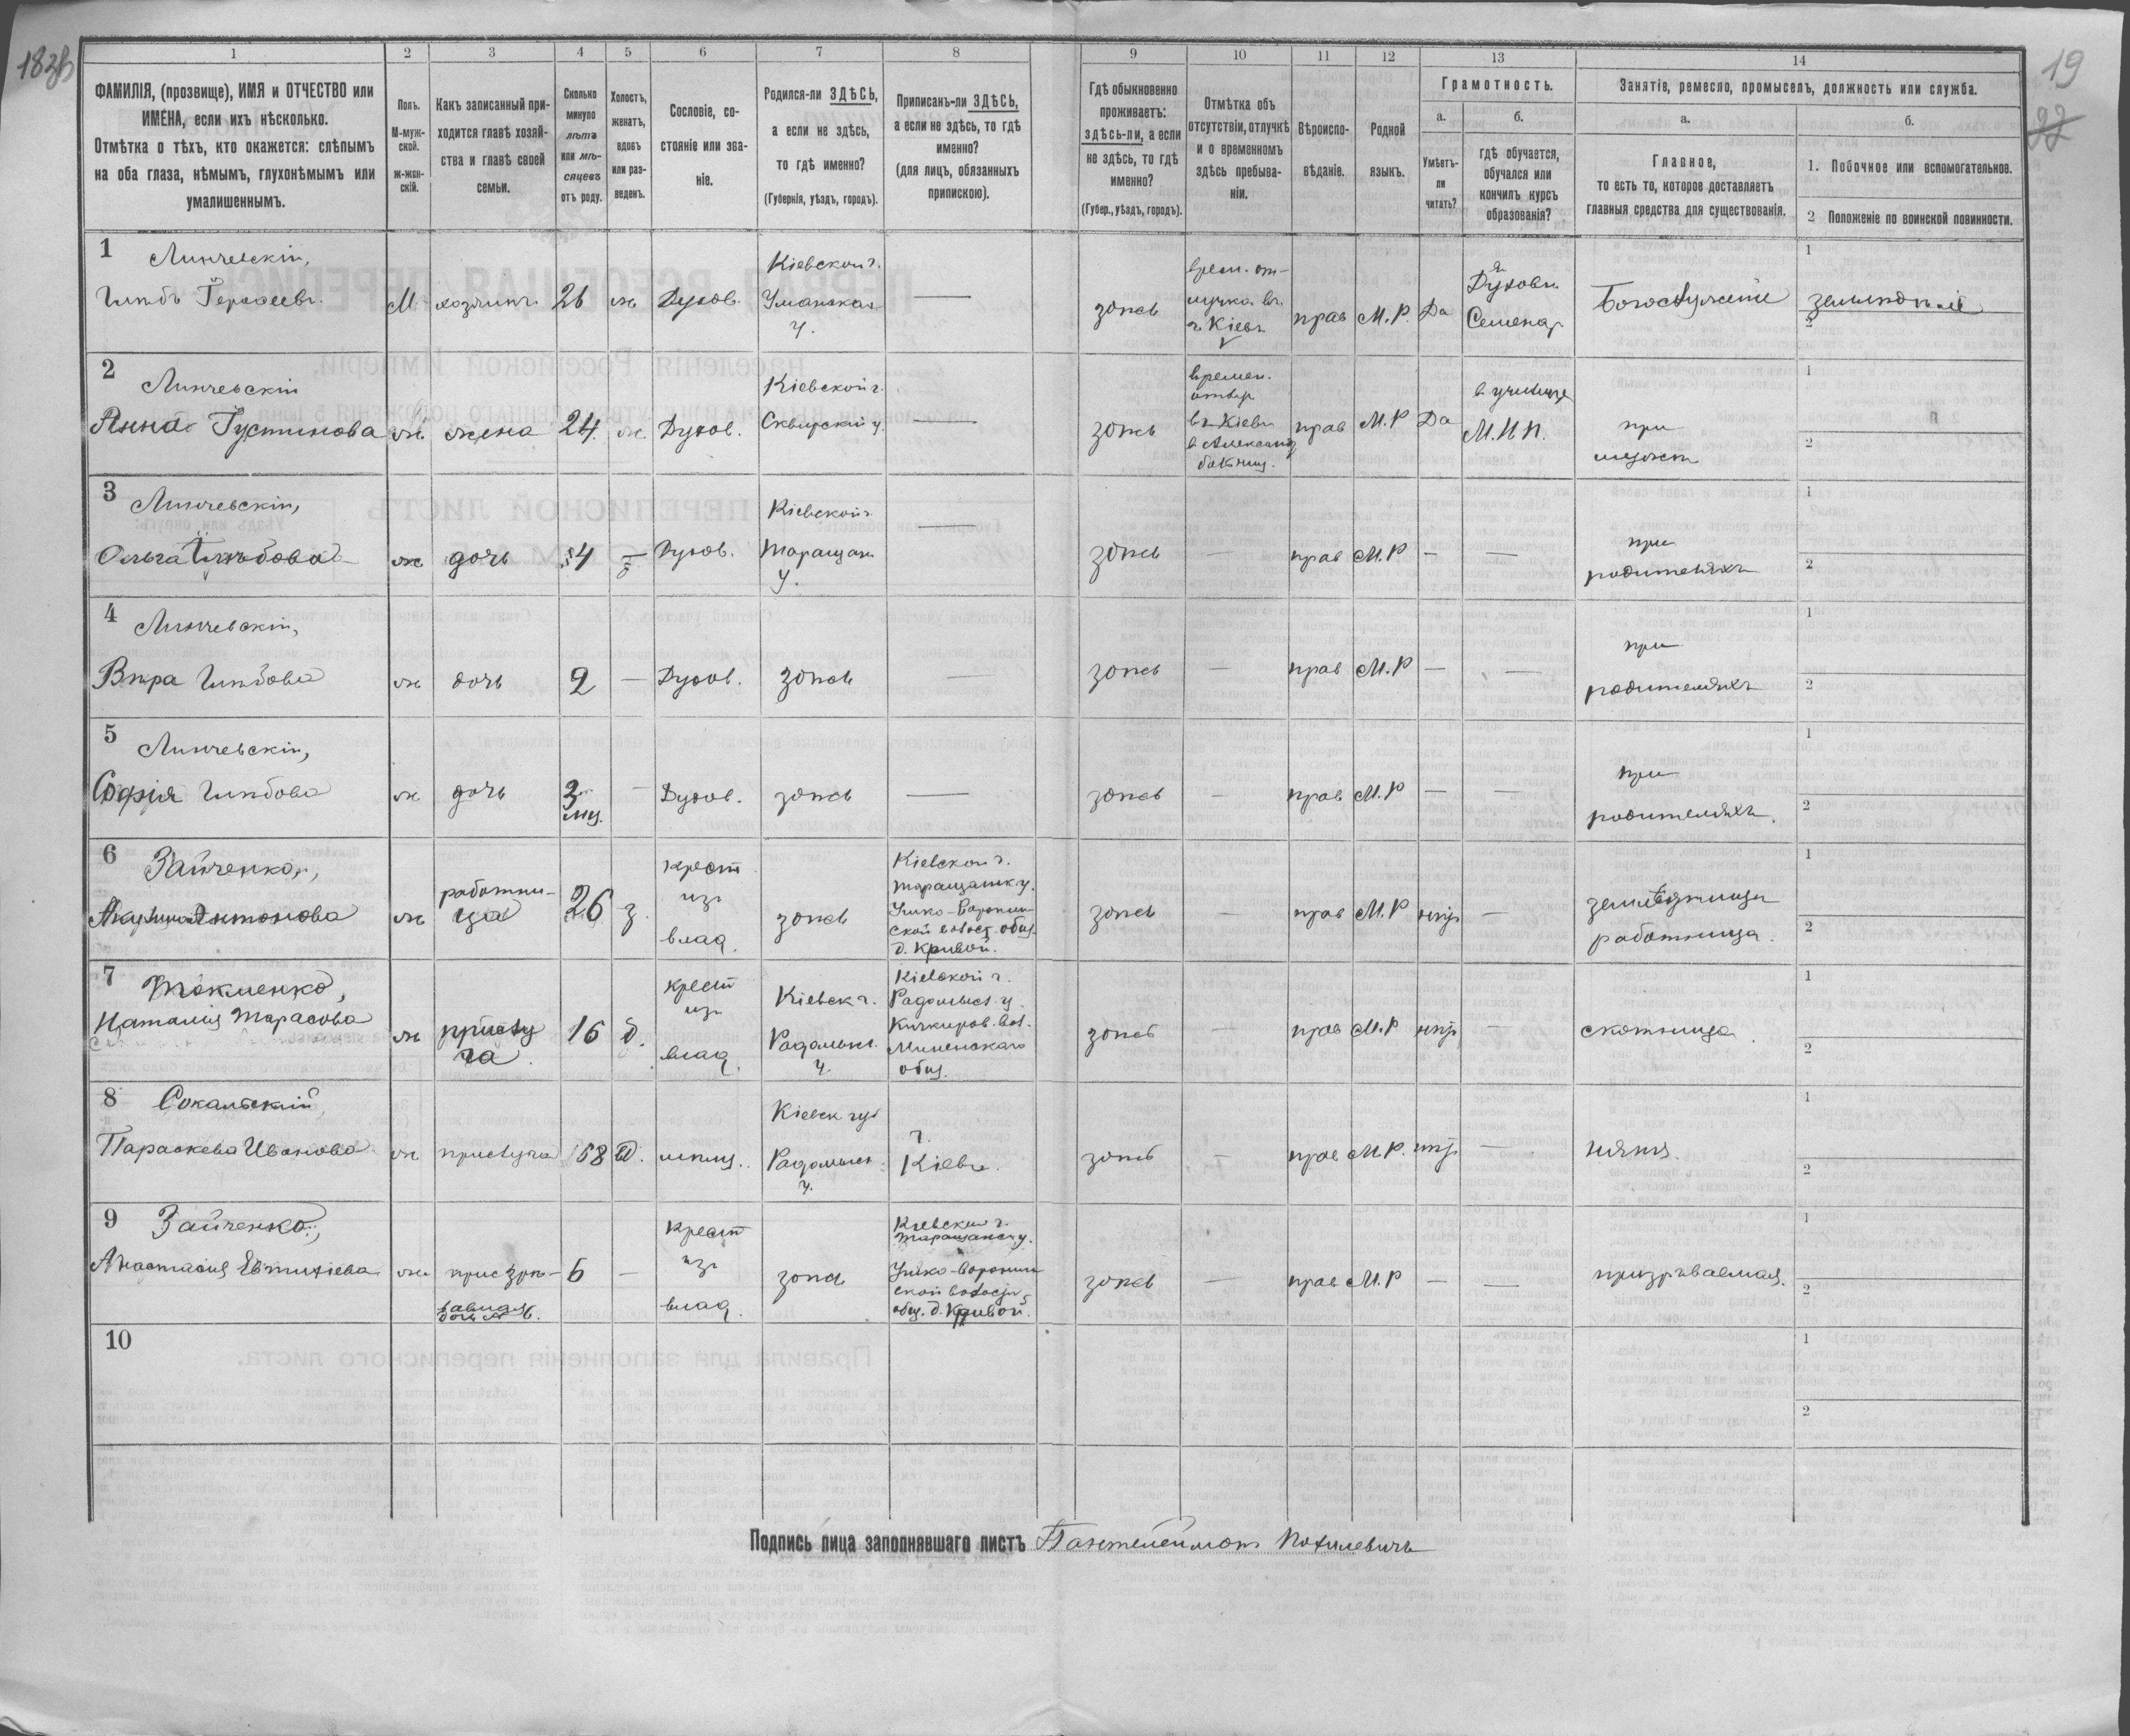 19
1
2
3
4
5
6
7
8
9
10
11
12
13
14
ФАМИЛІЯ, (прозвище), ИМЯ и ОТЧЕСТВО или
ИМЕНА, если ихъ нѣсколько.
Отмѣтка о тѣхъ, кто окажется: слѣпымъ
на оба глаза, нѣмымъ, глухонѣмымъ или
умалишеннымъ.
Полъ.
М-муж-
ской.
ж-жен-
скій.
Какъ записанный при-
ходится главѣ хозяй-
ства и главѣ своей
семьи.
Сколько
минуло
лѣтъ
или мѣ-
сяцевъ
отъ роду.
Холостъ,
женатъ,
вдовъ
или раз-
веденъ.
Сословіе, со-
стояніе или зва-
ніе.
Родился-ли ЗДѢСЬ,
а если не здѣсь,
то гдѣ именно?
(Губернія, уѣздъ, городъ).
Приписанъ-ли ЗДѢСЬ,
а если не здѣсь, то гдѣ
именно?
(для лицъ, обязанныхъ
припискою).
Гдѣ обыкновенно
проживаетъ:
здѣсь-ли, а если
не здѣсь, то гдѣ
именно?
(Губер., уѣздъ, городъ).
Отмѣтка объ
отсутствіи, отлучкѣ
и о временномъ
здѣсь пребыва-
ніи.
Вѣроиспо-
вѣданіе.
Родной
языкъ.
Грамотность.
а.
Умѣетъ-
ли
читать?
б.
гдѣ обучается,
обучался или
кончилъ курсъ
образованія?
Занятіе, ремесло, промыселъ, должность или служба.
а.
Главное,
то есть то, которое доставляетъ
главныя средства для существованія.
б.
1. Побочное или вспомогательное.
2 Положеніе по воинской повинности.
1
Линчевскій,
М. хозяинъ 26 ж Духов.
Кіевской г.
Уманскаго
у.
здѣсь
врем. от-
лучка въ
г. Кіевъ
прав М.Р. Да
Духовн
Семинар
Богослуженіе
земледѣліе
1
2
2
Линчевскій
Анна Густинова ж. жена 24. ж. Духов.
Кіевской г.
Сквирскій у.
здѣсь
времен.
въ Кіевѣ
прав М.Р Да
в училище
М.Н.П.
при
мужѣ
1
2
3
Линчевскій,
Ольга Глѣбова ж дочь 4 Духов.
Кіевской г.
Таращан.
у.
здѣсь прав М.Р
при
родителяхъ
1
2
4
Линчевскій,
Вѣра Глѣбова ж дочь 2 Духов. здѣсь
здѣсь прав М.Р
при
родителяхъ
1
2
5
Линчевскій,
Софія Глѣбова ж дочь 3 мц. Духов. здѣсь
здѣсь прав М.Р
при
родителяхъ.
1
2
6
Зайченко,
Акулина Антонова ж
работни-
ца
26 з.
крест
из
влад.
здѣсь
Кіевской г.
Таращанск. у.
д. Кривой.
здѣсь прав М.Р негр
работница.
1
2
7
Наталія Тарасова ж
прислу
га
16 д.
крест
из
влад.
Кіевск г.
Радомысл.
у.
Кіевской г.
Радомысл. у.
общ.
здѣсь прав М.Р негр
скотница.
1
2
8
Сокальскій
Параскева Иванова ж прислуга 68 мѣщ.
Кіевск губ
Радомысл.
у.
г.
Кіевъ.
здѣсь прав М.Р. негр
няня.
1
2
9
Зайченко,
Анастасія Евтихіева ж 6
крест
из
влад.
здѣсь
Кіевской г.
Таращанск у.
общ. д. Кривой.
здѣсь прав М.Р
призрѣваемая.
1
2
10
1
2
Подпись лица заполнявшаго листъ Пантелеимонъ Похилевичъ